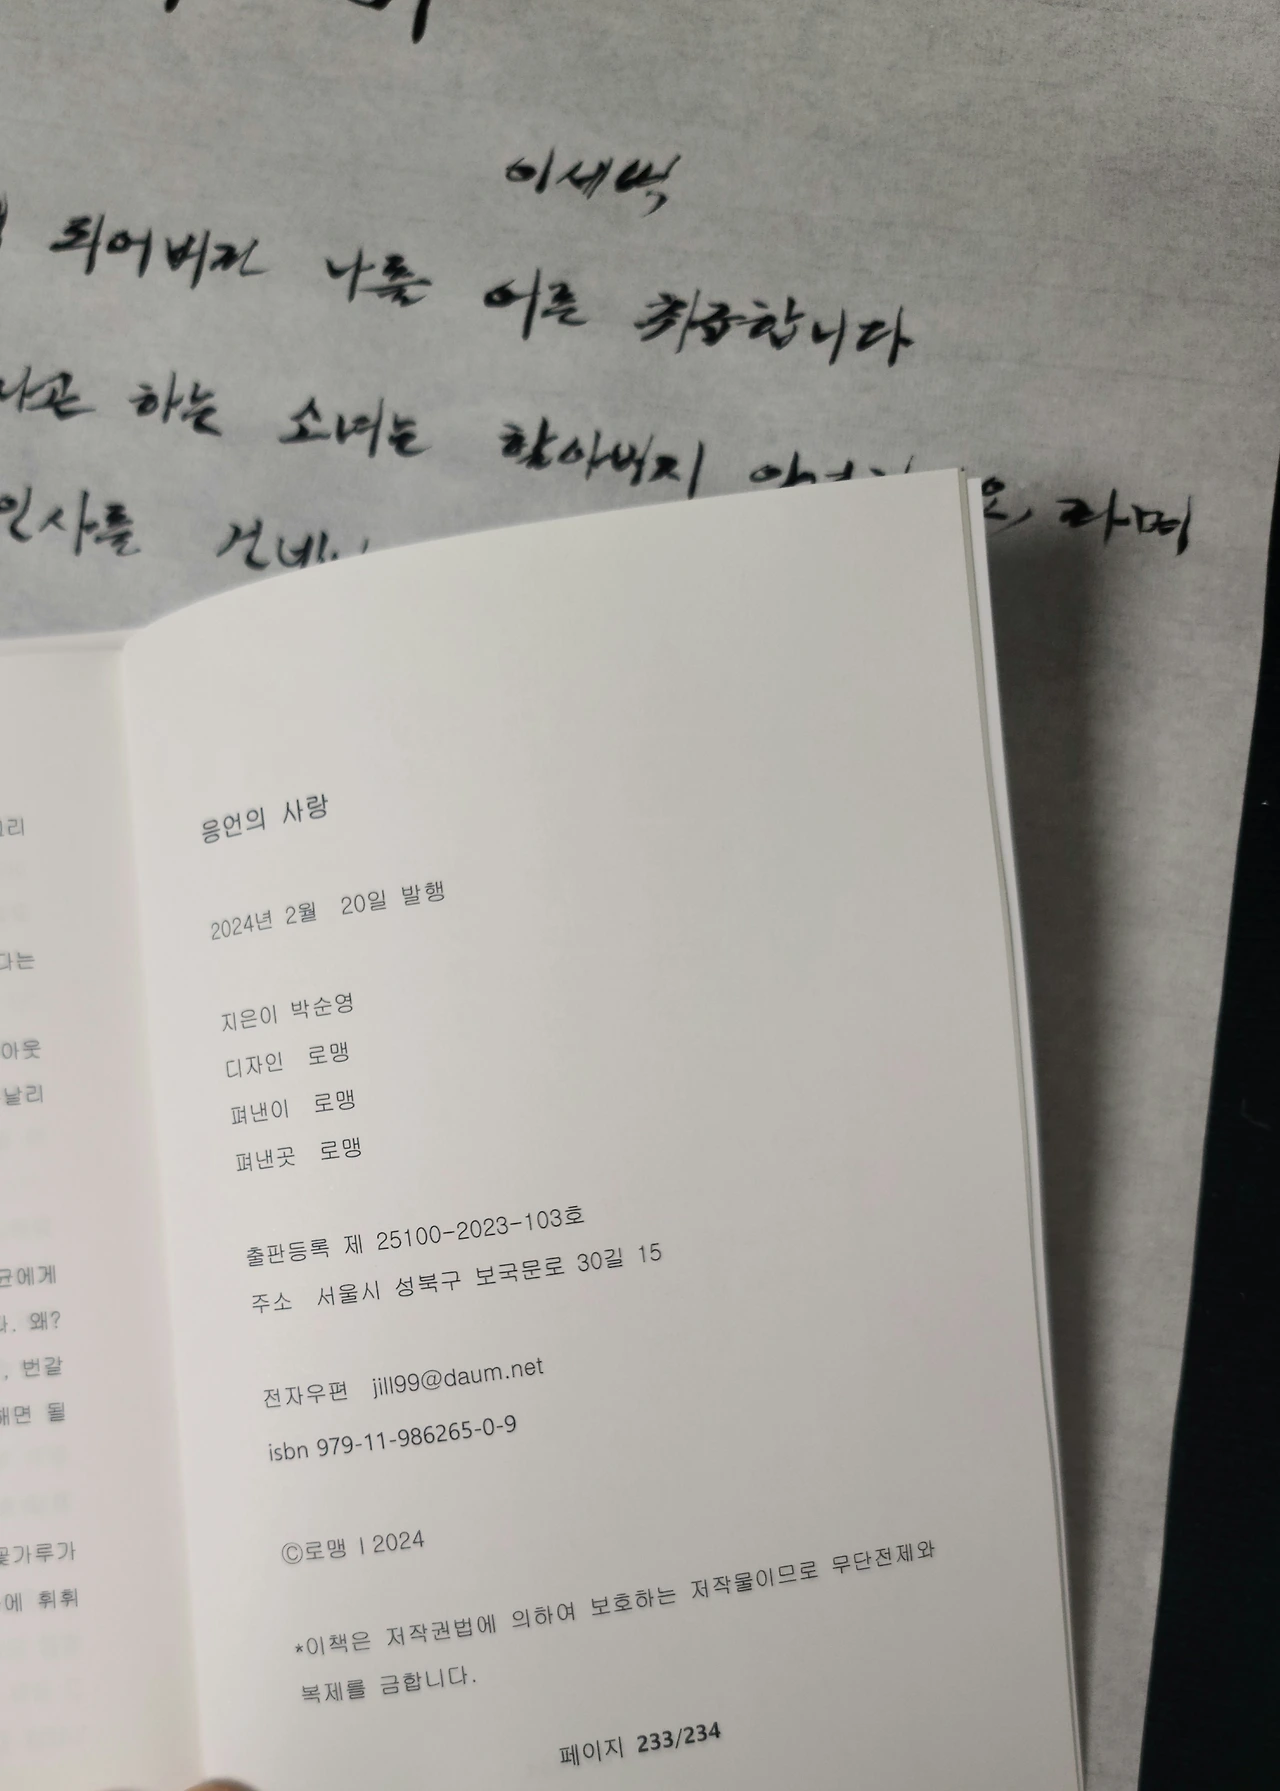 이세벽
되어버린 나를 어른 취급합니다
하는 소녀는 할아버지 라며
인사를
그리
다는
아웃
날리
균에게
왜?
번갈
해면 될
꽃가루가
에 휘휘
응언의 사랑
2024년 2월 20일 발행
지은이 박순영
디자인 로맹
펴낸이 로맹
펴낸곳 로맹
출판등록 제 25100-2023-103호
주소 서울시 성북구 보국문로 30길 15
전자우편 jill99@daum.net
isbn 979-11-986265-0-9
©로맹 | 2024
*이책은 저작권법에 의하여 보호하는 저작물이므로 무단전제와
복제를 금합니다.
페이지 233/234